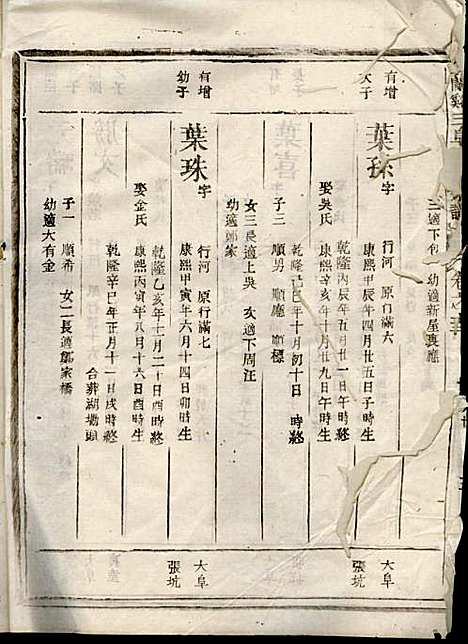 三適下包 幼適新屋裏應
有增
次子
葉 字 行河 原行滿六
康熙甲辰年四月廿五日子時生
乾隆丙辰年五月廿一日午時終
娶吳氏 康熙辛亥年十月廿九日午時生
乾隆己巳年十月初十日 時終
子三 順男 順 順標
女三長適上吳 次適下周汪
幼適鄭家
大阜
張坑
有增
幼子
葉珠 字 行河 原行滿七
康熙甲寅年六月十四日卯時生
乾隆乙亥年七月二十日酉時終
娶金氏 康熙丙寅年八月十六日酉時生
乾隆辛巳年正月十一日戌時終
合葬湖塘頭
子一 順希 女二長適鄭家橋
幼適大有金
大阜
張坑